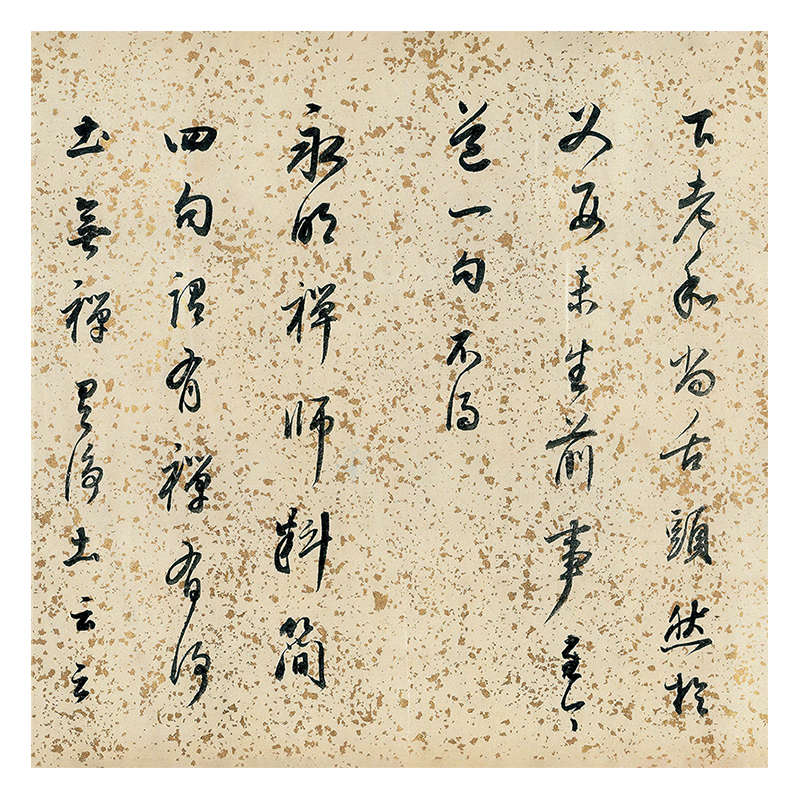 下老和尚舌頭然於
父母未生前事至今
道一句不得
永明禪師料簡
四句謂有禪有淨
土無禪無淨土云云